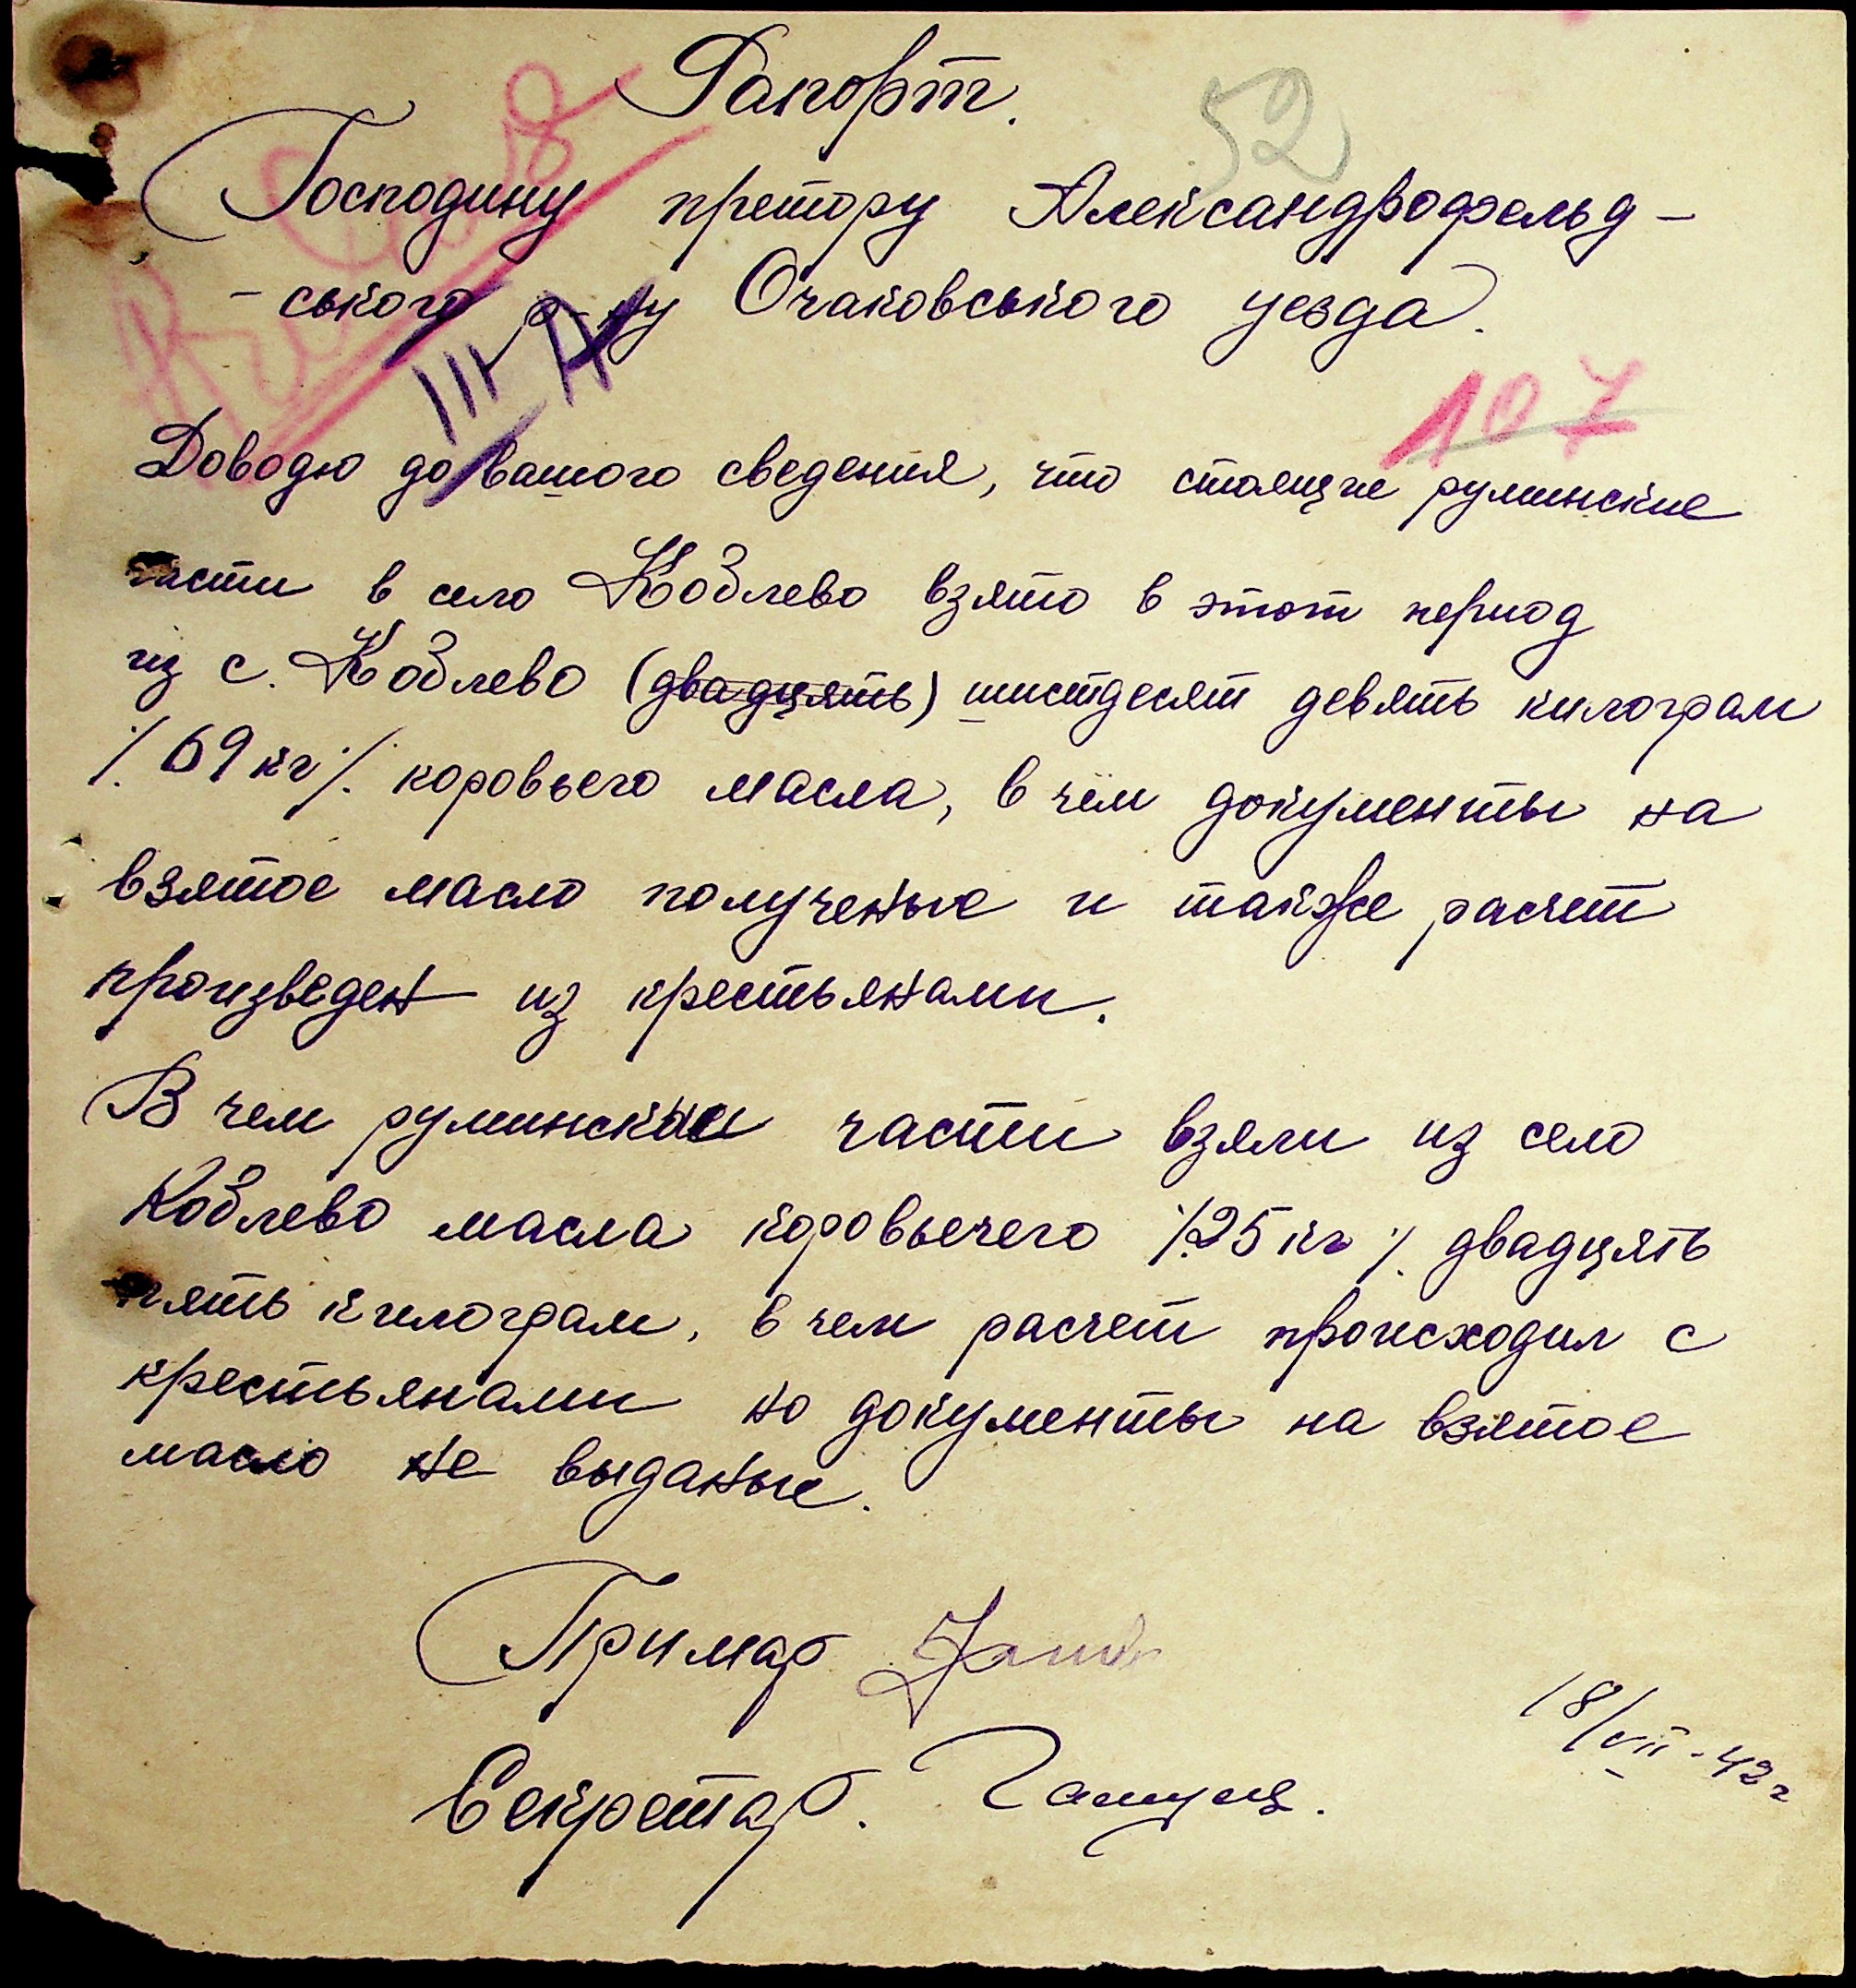 Рапорт.
52
Господину претору Александрофельд-
-ського р-ну Очаковського уезда.
III A
107
Доводю до вашого сведения, что стоящие руминские
части в село Коблево взято в этот период
из с. Коблево (двадцять) шистдесят девять килограм
/. 69 кг /. коровьего масла, в чём документы на
взятое масло полученые и также расчет
произведен из крестьянами.
В чем руминскии части взяли из село
Коблево масла коровьечего /. 25 кг /. двадцять
пять килограм, в чем расчет происходил с
крестьянами но документы на взятое
масло не выданые.
Примар
Секретар.
18/VII - 42 г